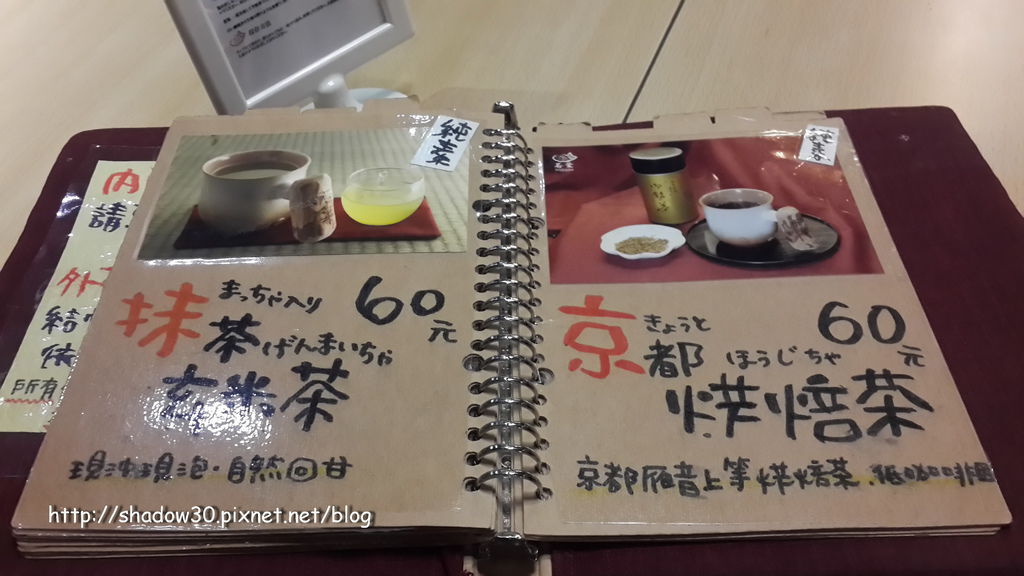 純素
まっちゃ入り
抹茶
60元
げんまいちゃ
玄米茶
現沖現泡・自然回甘
純素
きょうと
京都
60元
ほうじちゃ
烘焙茶
京都雁音上等烘焙茶.低咖啡因
内
請
外
結
所有
http://shadow30.pixnet.net/blog